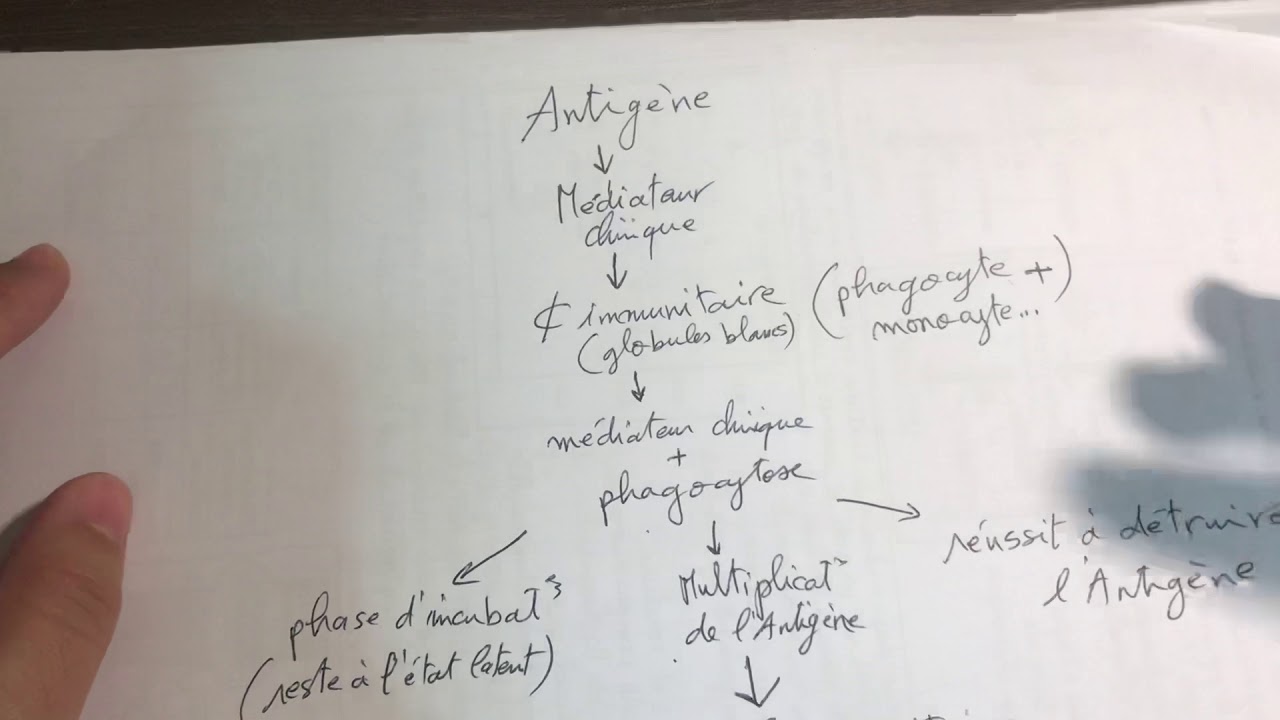 Antigène
Médiateur
chiique
¢ immunitaire (phagocyte +)
(globules blancs) monocyte...
médiateur chiique
+
phagocytose
réussit à détruire
l'Antigène
Multiplicat°
de l'Antigène
phase d'incubat°
(reste à l'état latent)